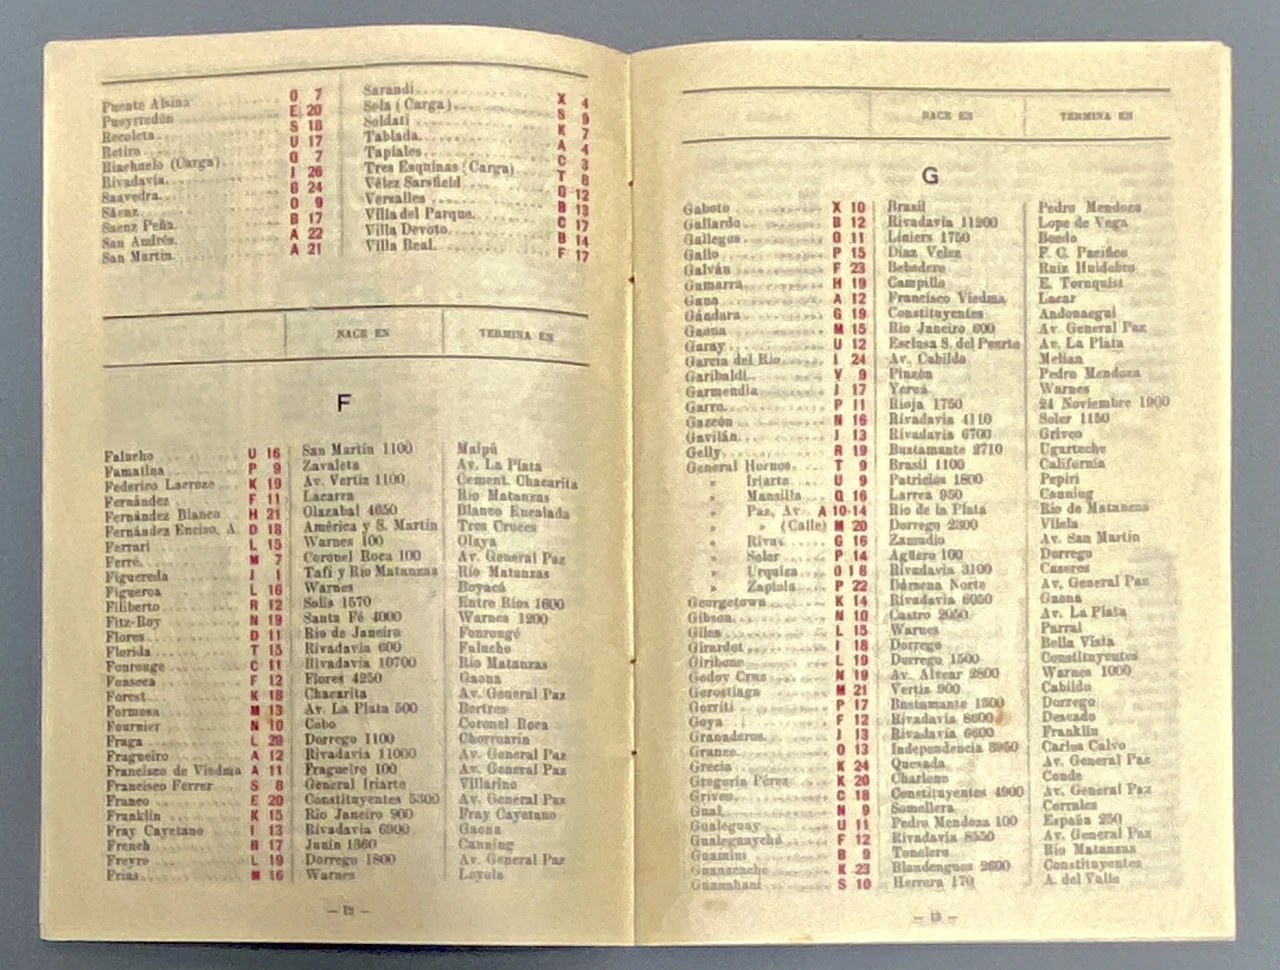 Puente Alsina O 7
Pueyrredón E 20
Recoleta S 18
Retiro U 17
Riachuelo (Carga) Q 7
Rivadavia J 26
Saavedra G 24
Sáenz O 9
Saenz Peña B 17
San Andrés A 22
San Martín A 21
Sarandí X 4
Sola (Carga) S 9
Soldati K 7
Tablada A 4
Tapiales C 3
Tres Esquinas (Carga) T 8
Vélez Sarsfield Q 12
Versalles B 13
Villa del Parque C 17
Villa Devoto B 14
Villa Real F 17
NACE EN TERMINA EN
F
Falucho U 16 San Martín 1100 Maipú
Famatina P 9 Zavaleta Av. La Plata
Federico Lacroze K 19 Av. Vertiz 1100 Cement. Chacarita
Fernández F 11 Lacarra Río Matanzas
Fernández Blanco H 21 Olazabal 4650 Blanco Encalada
Fernández Enciso, A. D 18 América y S. Martín Tres Cruces
Ferrari L 15 Warnes 100 Olaya
Ferré M 7 Coronel Roca 100 Av. General Paz
Figueredo J 1 Tafí y Río Matanzas Río Matanzas
Figueroa L 16 Warnes Boyacá
Filiberto R 12 Solís 1570 Entre Ríos 1600
Fitz-Roy N 19 Santa Fé 4000 Warnes 1200
Flores D 11 Río de Janeiro Fonrougé
Florida T 15 Rivadavia 600 Falucho
Fonrouge C 11 Rivadavia 10700 Río Matanzas
Fonseca F 12 Flores 4250 Gaona
Forest K 18 Chacarita Av. General Paz
Formosa M 13 Av. La Plata 500 Bertres
Fournier N 10 Cobo Coronel Roca
Fraga L 20 Dorrego 1100 Chorroarín
Fragueiro A 12 Rivadavia 11000 Av. General Paz
Francisco de Viedma A 11 Fragueiro 100 Av. General Paz
Francisco Ferrer S 8 General Iriarte Villarino
Franco E 20 Constituyentes 5300 Av. General Paz
Franklin K 15 Río Janeiro 900 Fray Cayetano
Fray Cayetano I 13 Rivadavia 6900 Gaona
French R 17 Junín 1360 Canning
Freyre L 19 Dorrego 1800 Av. General Paz
Frías M 16 Warnes Loyola
— 12 —
NACE EN TERMINA EN
G
Gaboto X 10 Brasil Pedro Mendoza
Gallardo B 12 Rivadavia 11200 Lope de Vega
Gallegos O 11 Liniers 1750 Boedo
Gallo P 15 Díaz Velez F. C. Pacífico
Galván F 23 Bebedero Ruiz Huidobro
Gamarra H 19 Campillo E. Tornquist
Gana A 12 Francisco Viedma Lacar
Gándara G 19 Constituyentes Andonaegui
Gaona M 15 Río Janeiro 600 Av. General Paz
Garay U 12 Esclusa S. del Puerto Av. La Plata
García del Río I 24 Av. Cabildo Melian
Garibaldi V 9 Pinzón Pedro Mendoza
Garmendia J 17 Yeruá Warnes
Garro P 11 Rioja 1750 24 Noviembre 1900
Gazcón N 16 Rivadavia 4110 Soler 1150
Gavilán J 13 Rivadavia 6700 Griveo
Gelly R 19 Bustamante 2710 Ugarteche
General Hornos T 9 Brasil 1100 California
» Iriarte U 9 Patricios 1800 Pepirí
» Mansilla Q 16 Larrea 950 Canning
» Paz, Av. A 10-14 Río de la Plata Río de Matanzas
» » (Calle) M 20 Dorrego 2300 Vilela
» Rivas G 16 Zamudio Av. San Martín
» Soler P 14 Agüero 100 Dorrego
» Urquiza O 1 8 Rivadavia 3100 Caseros
» Zapiola P 22 Dársena Norte Av. General Paz
Georgetown K 14 Rivadavia 6050 Gaona
Gibson N 10 Castro 2050 Av. La Plata
Giles L 15 Warnes Parral
Girardot I 18 Dorrego Bella Vista
Giribone L 19 Dorrego 1500 Constituyentes
Godoy Cruz N 19 Av. Alvear 2800 Warnes 1000
Gorostiaga M 21 Vertiz 900 Cabildo
Gorriti P 17 Bustamante 1300 Dorrego
Goya F 12 Rivadavia 8600 Deseado
Granaderos J 13 Rivadavia 6600 Franklin
Granzo O 13 Independencia 3950 Carlos Calvo
Grecia K 24 Quesada Av. General Paz
Gregoria Pérez K 20 Charlone Conde
Griveo C 18 Constituyentes 4900 Av. General Paz
Gual N 9 Somellera Corrales
Gualeguay U 11 Pedro Mendoza 100 España 250
Gualeguaychú F 12 Rivadavia 8550 Av. General Paz
Guamini B 9 Tonelero Río Matanzas
Guanacache K 23 Blandengues 2600 Constituyentes
Guanahani S 10 Herrera 170 A. del Valle
— 13 —